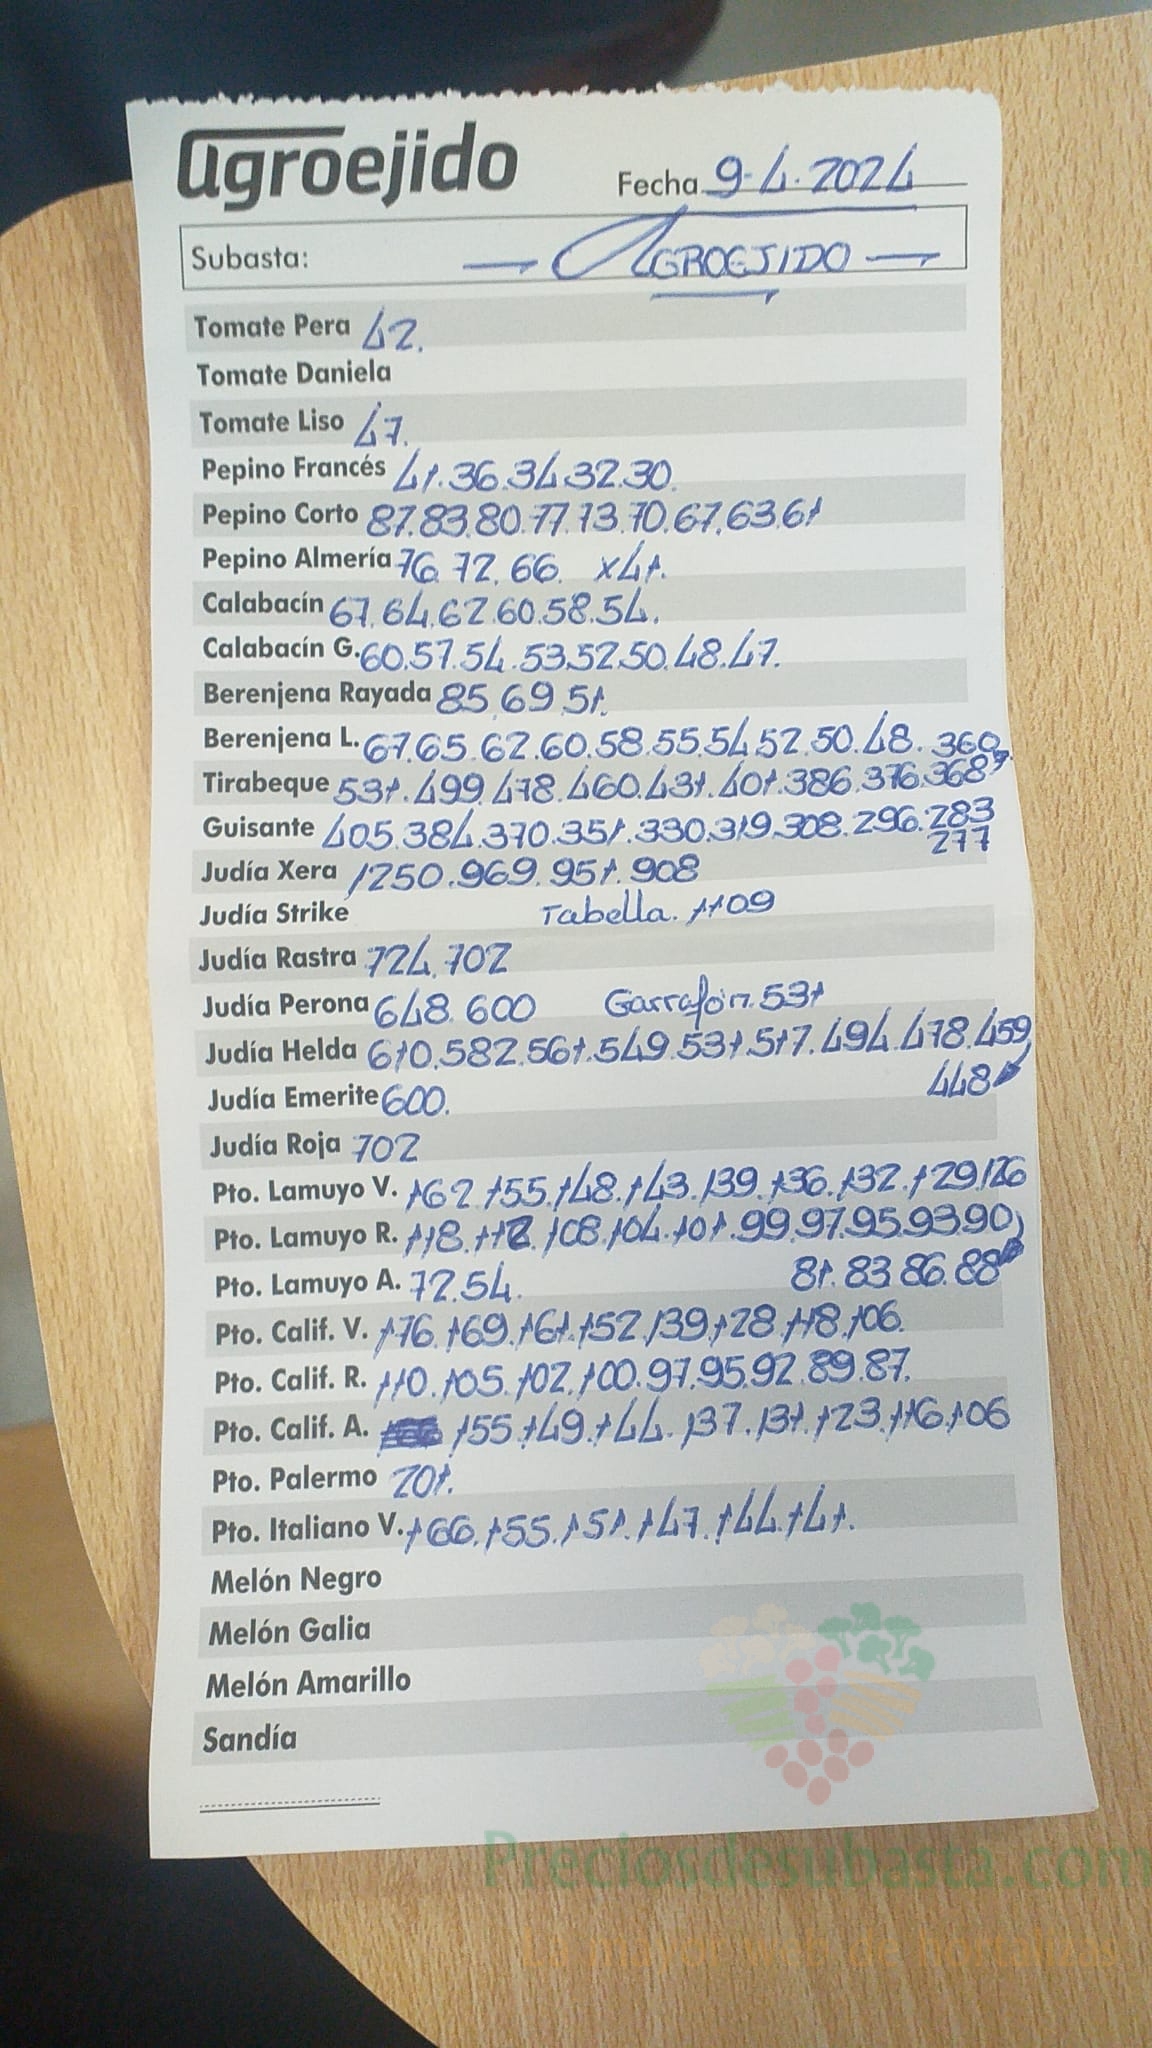 agroejido
Fecha 9-4-2024
Subasta: — AGROEJIDO —
Tomate Pera 42.
Tomate Daniela
Tomate Liso 47.
Pepino Francés 41.36.34.32.30.
Pepino Corto 87.83.80.77.73.70.67.63.61
Pepino Almería 76.72.66. x41.
Calabacín 67.64.62.60.58.54.
Calabacín G. 60.57.54.53.52.50.48.47.
Berenjena Rayada 85.69.51.
Berenjena L. 67.65.62.60.58.55.54.52.50.48. 360
Tirabeque 531.499.478.460.431.401.386.376.368
Guisante 405.384.370.351.330.319.308.296.283
277
Judía Xera 1250.969.951.908
Judía Strike Tabella. 1109
Judía Rastra 724.702
Judía Perona 648.600 Garrafón.531
Judía Helda 610.582.561.549.531.517.494.478.459
448
Judía Emerite 600.
Judía Roja 702
Pto. Lamuyo V. 162.155.148.143.139.136.132.129.126
Pto. Lamuyo R. 118.112.108.104.101.99.97.95.93.90
Pto. Lamuyo A. 72.54. 81.83.86.88
Pto. Calif. V. 176.169.161.152.139.128.118.106.
Pto. Calif. R. 110.105.102.100.97.95.92.89.87.
Pto. Calif. A. 155.149.144.137.131.123.116.106
Pto. Palermo 201.
Pto. Italiano V. 166.155.151.147.144.141.
Melón Negro
Melón Galia
Melón Amarillo
Sandía
Preciosdesubasta.com
La mayor web de hortalizas